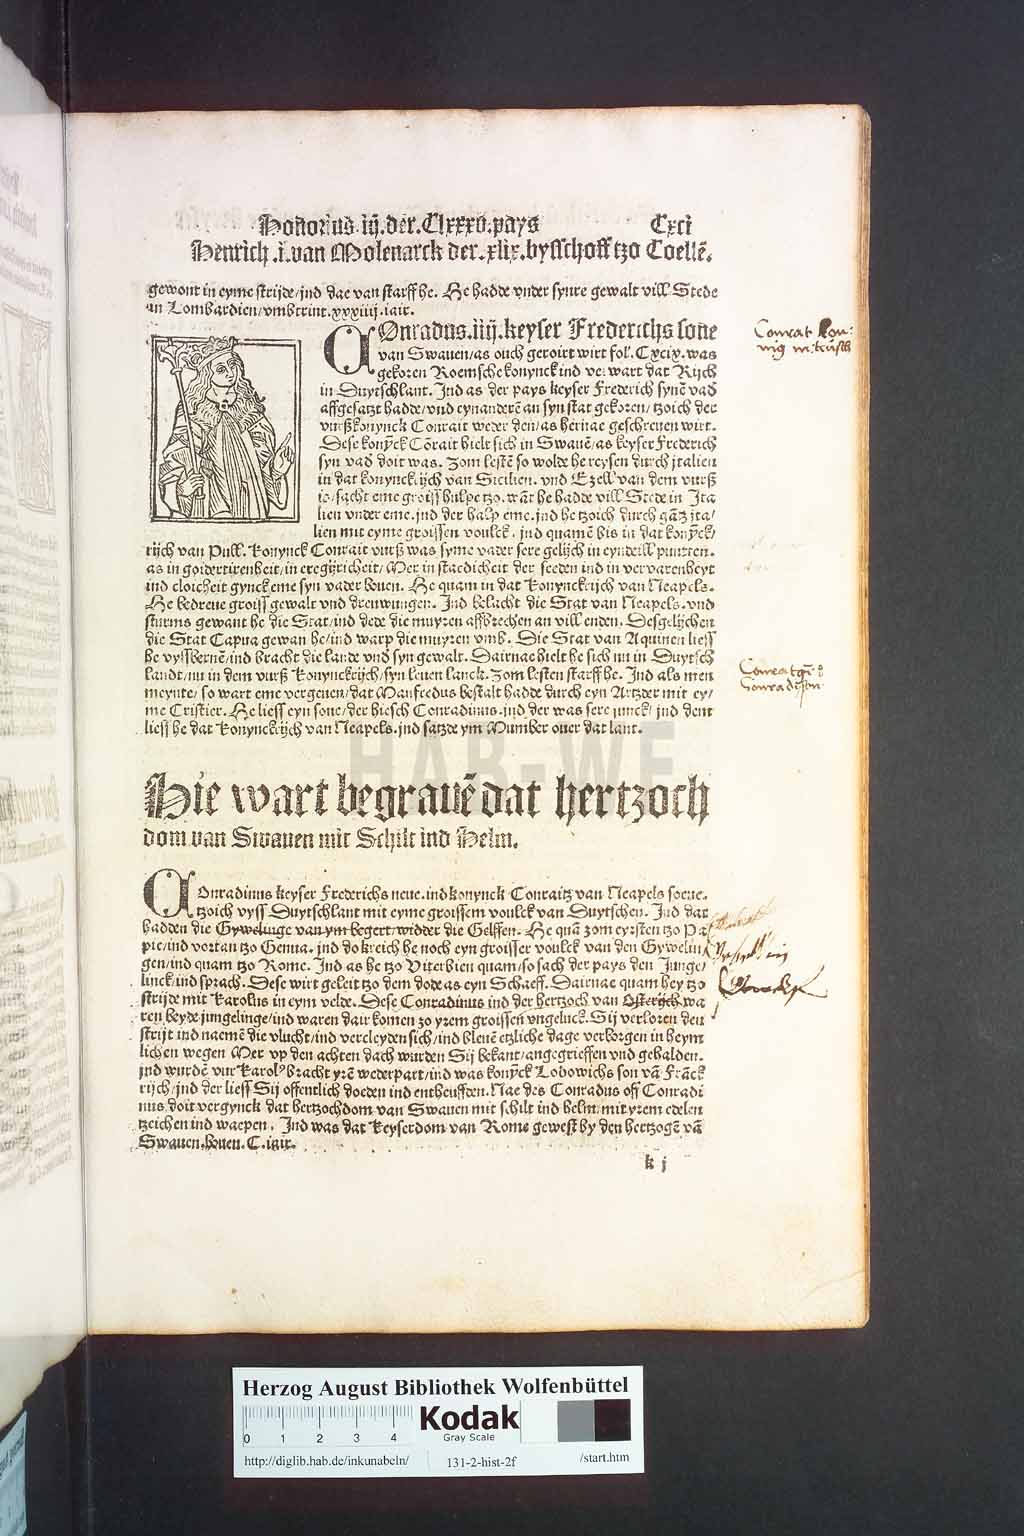 Honorius .iij. der. Clxxxv. pays Cxci
Henrich .i. van Molenarck der .xlix. bysschoff tzo Coellē.
gewont in eyme strijde/ind dae van starff he. He hadde vnder synre gewalt vill Stede
in Lombardien/vmbtrint .xxxiiij. iair.
COnradus .iiij. keyser Frederichs sone
van Swauen/as ouch geroirt wirt fol. Cxcix. was
gekoren Roemsche konynck ind verwart dat Rijch
in Duytschlant. Ind as der pays keyser Frederich synē vad
affgesatzt hadde/vnd eynanderē an syn stat gekoren/tzoich der
vurß konynck Conrait weder den/as hernae geschreuen wirt.
Dese konȳck Cōrait hielt sich in Swauē/as keyser Frederich
syn vad doit was. Zom lestē so wolde he reysen durch jtalien
in dat konynckrijch van Sicilien. vnd Ezell van dem vurß
is/sacht eme groiss hulpe tzo. wāt he hadde vill Stede in Ita
lien vnder eme. jnd der halp eme. jnd he tzoich durch gātz jta/
lien mit eyme groissen voulck. jnd quamē bis in dat konȳck/
rijch van Pull. Konynck Conrait vurß was syme vader sere gelijch in eyndeill punten.
as in goidertirenheit/in eregijricheit/Mer in staedicheit der seeden ind in vervarenheyt
ind cloicheit gynck eme syn vader bouen. He quam in dat Konynckrijch van Neapels.
He bedreue groiss gewalt vnd dreuwungen. Ind belacht die Stat van Neapels. vnd
sturms gewant he die Stat/ind dede die muyren affbrechen an vill enden. Desgelijchen
die Stat Capua gewan he/ind warp die muyren vmb. Die Stat van Aquinen liess
he vyssbernē/ind bracht die lande vnd syn gewalt. Dairnae hielt he sich nu in Duytsch
landt/nu in dem vurß Konynckrijch/syn leuen lanck. Zom lesten starff he. Ind als men
meynte/so wart eme vergeuen/dat Manfredus bestalt hadde durch eyn Artzder mit ey/
me Cristier. He liess eyn sone/der hiesch Conradinus. jnd der was sere junck/ jnd dem
liess he dat Konynckrijch van Neapels. jnd satzde ym Mumber ouer dat lant.
Hie wart begrauē dat hertzoch
dom van Swauen mit Schilt ind Helm.
COnradinus keyser Frederichs neue. ind konynck Conraitz van Neapels soene.
tzoich vyss Duytschlant mit eyme groissem voulck van Duytschen. Ind dat
hadden die Gywelinge van ym begert/widder die Gelffen. He quā zom eyrsten tzo Pa
pie/ind vortan tzo Genua. jnd do kreich he noch eyn groisser voulck van den Gywelin
gen/ind quam tzo Rome. Ind as he tzo Viterbien quam/so sach der pays den Junge/
linck/ind sprach. Dese wirt geleit tzo dem dode as eyn Schaeff. Dairnae quam hey tzo
strijde mit Karolus in eym velde. Dese Conradinus ind der hertzoch van Osterijch wa
ren beyde jungelinge/ind waren dair komen zo yrem groissen vngeluck. Sij verloren den
strijt ind naemē die vlucht/ind vercleyden sich/ind bleuē etzliche dage verborgen in heym
lichen wegen Mer vp den achten dach wurden Sij bekant/angegrieffen vnd gehalden.
jnd wurdē vur Karolꝰ bracht yrē wederpart/ind was konȳck Lodowichs son vā Frāck
rijch/jnd der liess Sij offentlich doeden ind entheuffden. Nae des Conradus off Conradi
nus doit vergynck dat hertzochdom van Swauen mit schilt ind helm/mit yrem edelen
tzeichen ind waepen. Ind was dat Keyserdom van Rome gewest by den hertzogē vā
Swauen bouen .C. iair.
k j
Conrat
HAB-WF
Herzog August Bibliothek Wolfenbüttel
0 1 2 3 4
Kodak
Gray Scale
http://diglib.hab.de/inkunabeln/ 131-2-hist-2f /start.htm